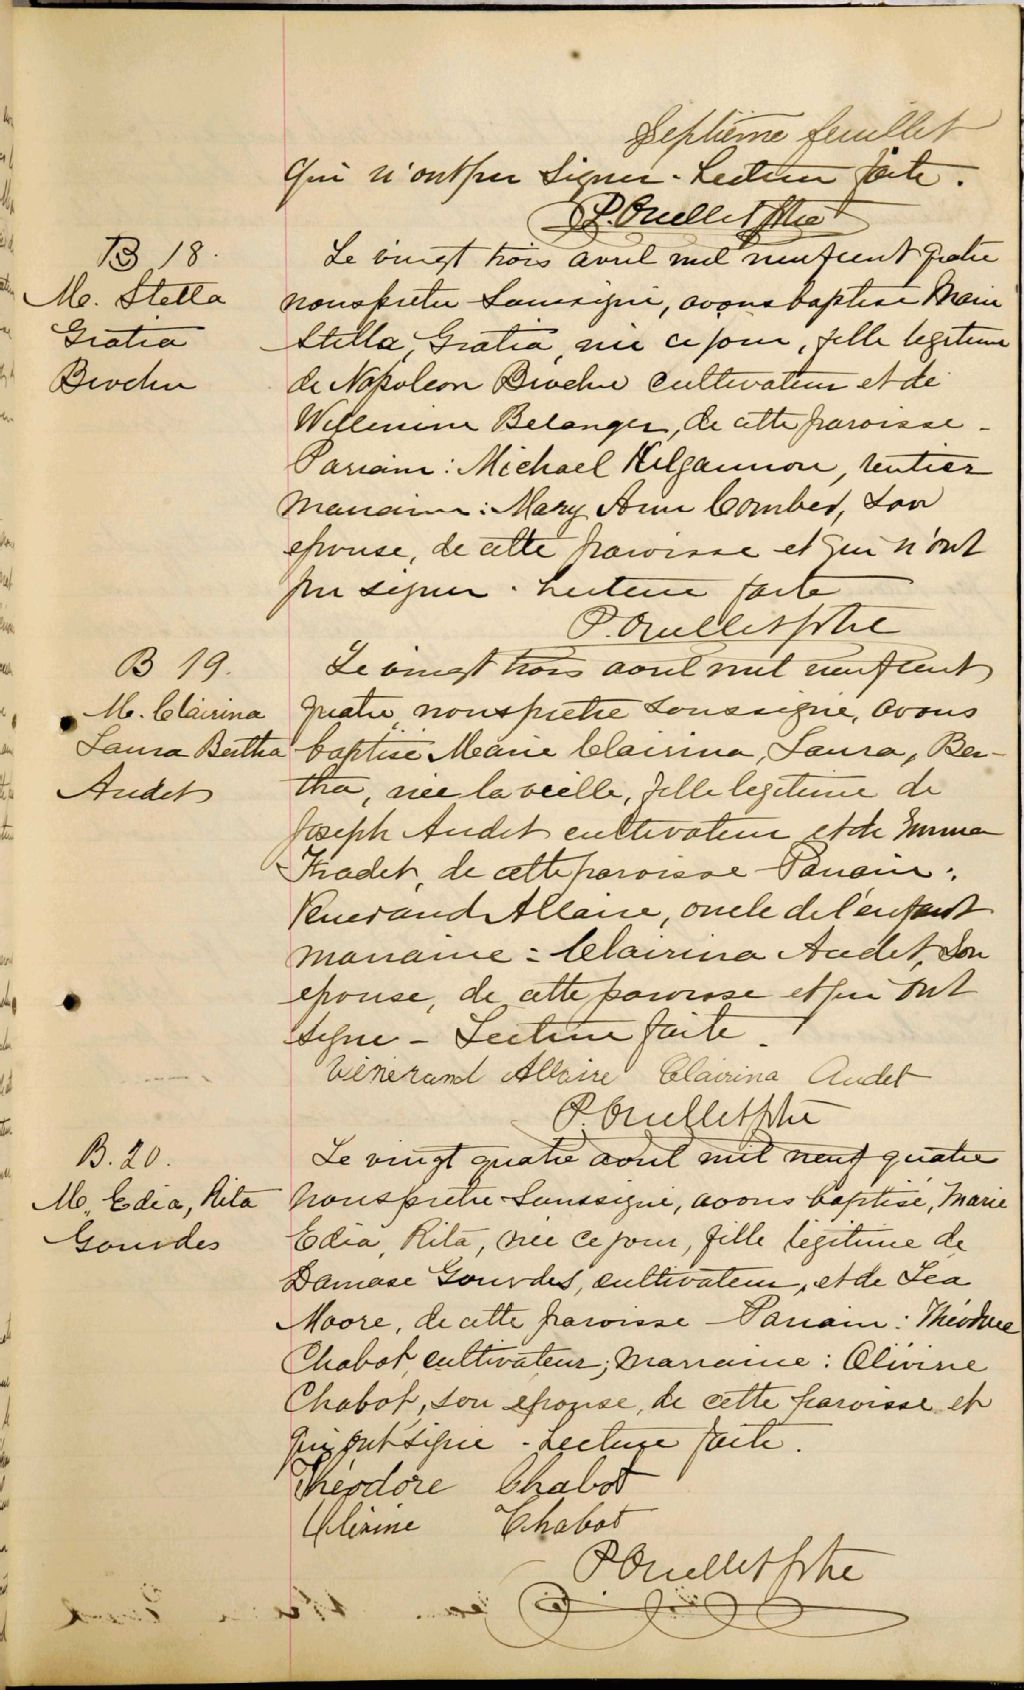 Septième feuillet
qui n'ont pu signer - Lecture faite.
P. Ouellet ptre
B 18.
M. Stella
Gratia
Brochu
Le vingt trois avril mil neuf cent quatre
nous prêtre soussigné, avons baptisé Marie
Stella, Gratia, née ce jour, fille legitime
de Napoleon Brochu cultivateur et de
Willemine Belanger, de cette paroisse -
Parrain: Michael Kilgannon, rentier
marraine: Mary Ann Comber, son
epouse, de cette paroisse et qui n'ont
pu signer. Lecture faite
P. Ouellet ptre
B 19.
M. Clairina
Laura Bertha
Audet
Le vingt trois avril mil neuf cent
quatre, nous pretre soussigné, avons
baptisé Marie Clairina, Laura, Ber-
tha, née la veille, fille legitime de
Joseph Audet cultivateur et de Emma
Fradet, de cette paroisse - Parrain:
Venerand Allaire, oncle de l'enfant
marraine: Clairina Audet, son
epouse, de cette paroisse et qui ont
signe - Lecture faite.
Vénérand Allaire Clairina Audet
P. Ouellet ptre
B. 20.
M. Edia, Rita
Gourdes
Le vingt quatre avril mil neuf quatre
nous pretre soussigné, avons baptisé, Marie
Edia, Rita, née ce jour, fille légitime de
Damase Gourdes, cultivateur, et de Léa
Moore, de cette paroisse - Parrain: Théodore
Chabot, cultivateur; marraine: Olivine
Chabot, son epouse, de cette paroisse et
qui ont signé - Lecture faite.
Théodore Chabot
Olivine Chabot
P. Ouellet ptre